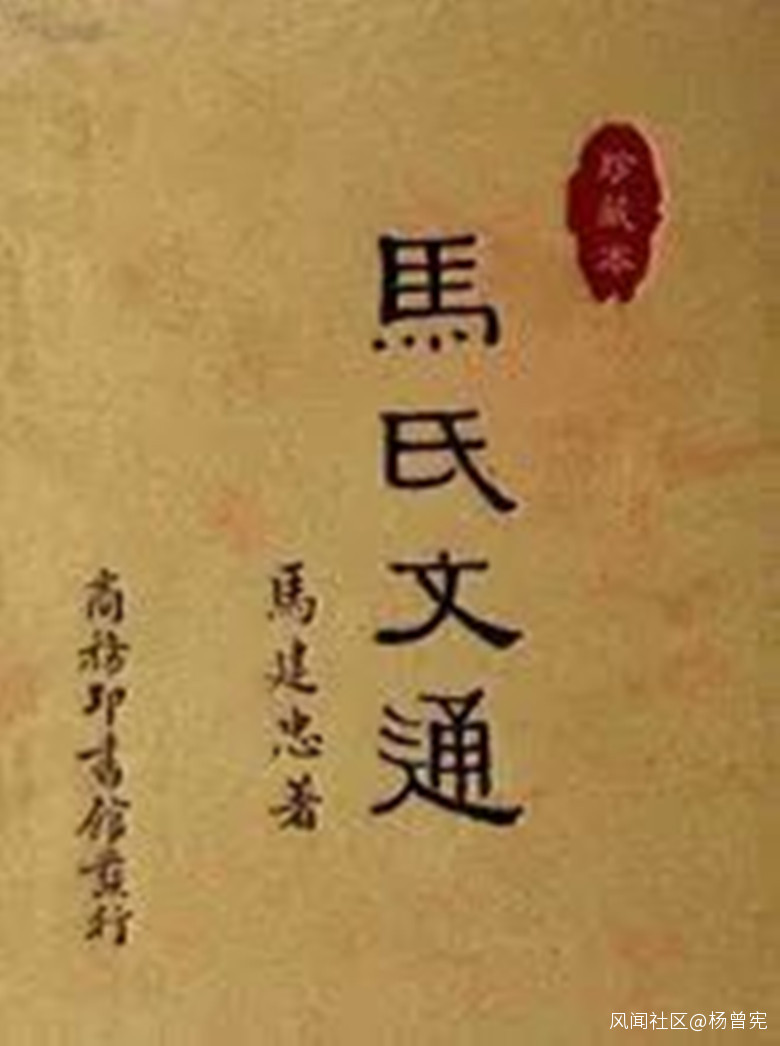 珍藏本
馬氏文通
馬建忠著
商務印書館發行
风闻社区@杨曾宪